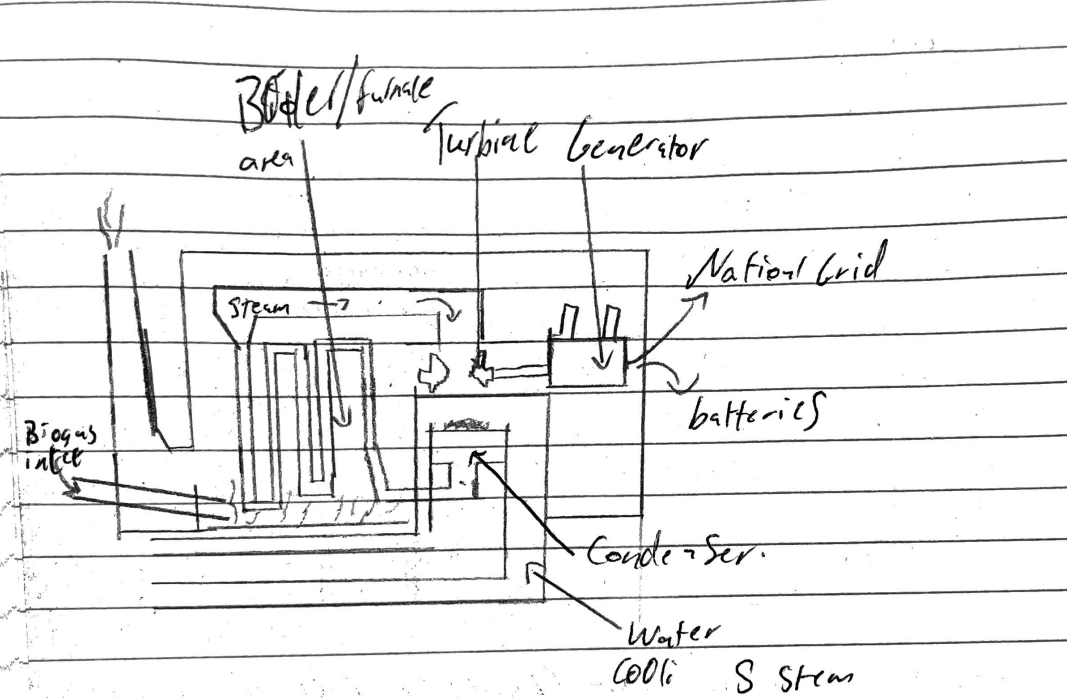 Boiler/furnace
area
Turbine Generator
National Grid
steam
batteries
Biogas
inlet
Condenser.
Water